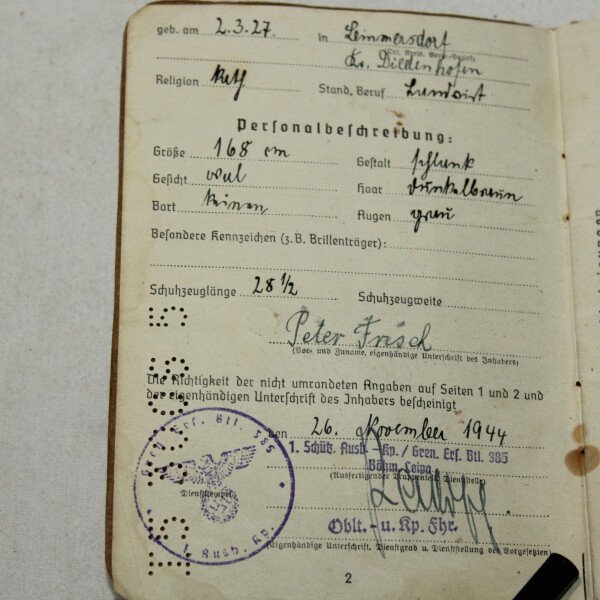 geb. am 2.3.27. in Lemmersdorf
(Ort, Kreis, Verw.-Bezirk)
Kr. Diedenhofen
Religion kath Stand, Beruf Landwirt
Personalbeschreibung:
Größe 168 cm Gestalt schlank
Gesicht oval Haar dunkelbraun
Bart keinen Augen grau
Besondere Kennzeichen (z. B. Brillenträger):
Schuhzeuglänge 28 ½ Schuhzeugweite
Peter Frisch
(Vor- und Zuname, eigenhändige Unterschrift des Inhabers)
Die Richtigkeit der nicht umrandeten Angaben auf Seiten 1 und 2 und
der eigenhändigen Unterschrift des Inhabers bescheinigt
den 26. November 1944
1. Schütz. Ausb.-Kp./Gren. Ers. Btl. 385
Böhm. Leipa
(Ausfertigender Truppenteil, Dienststelle)
Dienststempel
Gren. Ers. Btl. 385
1. Ausb. Kp.
Oblt.-u. Kp. Fhr.
(Eigenhändige Unterschrift, Dienstgrad u. Dienststellung des Vorgesetzten)
2